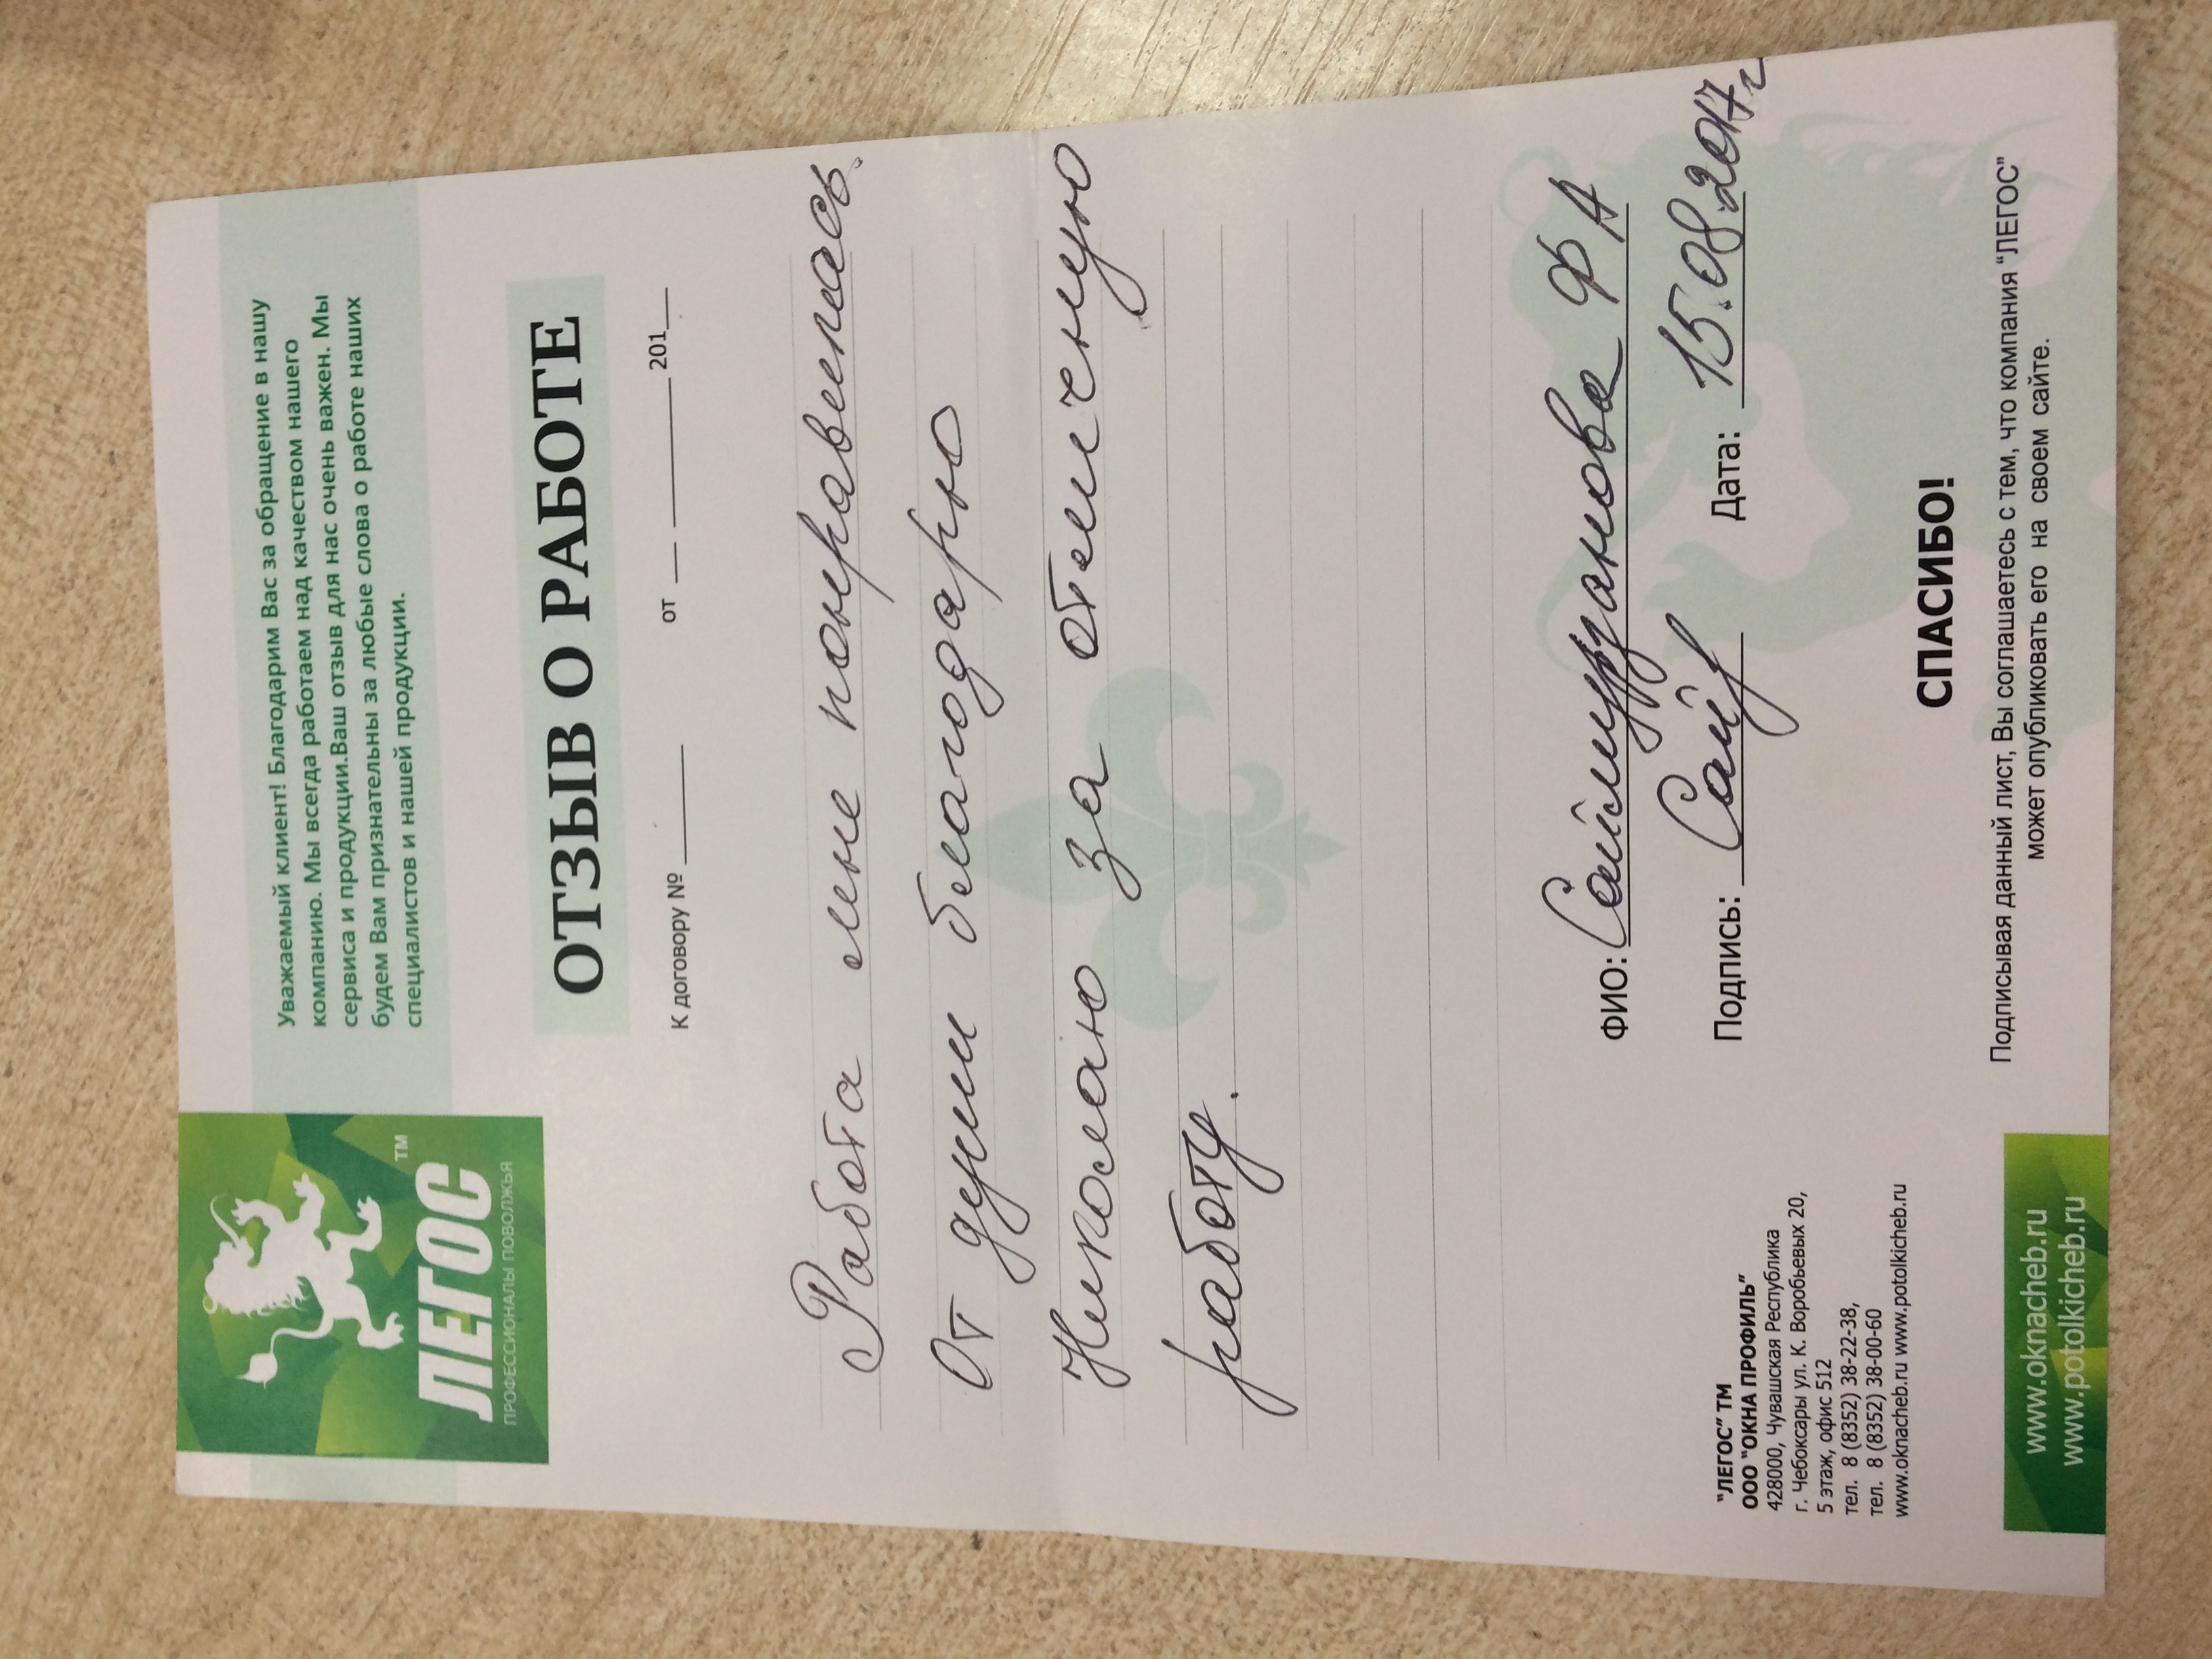 ЛЕГОС TM
ПРОФЕССИОНАЛЫ ПОВОЛЖЬЯ
Уважаемый клиент! Благодарим Вас за обращение в нашу
компанию. Мы всегда работаем над качеством нашего
сервиса и продукции.Ваш отзыв для нас очень важен. Мы
будем Вам признательны за любые слова о работе наших
специалистов и нашей продукции.
ОТЗЫВ О РАБОТЕ
К договору № ______ от __ ______ 201__
Работа мне понравилась.
От души благодарю
Николаю за отличную
работу.
ФИО: Саймурзанова Ф А
Подпись: Сайf Дата: 15.08.2017г
"ЛЕГОС" ТМ
ООО "ОКНА ПРОФИЛЬ"
428000, Чувашская Республика
г. Чебоксары ул. К. Воробьевых 20,
5 этаж, офис 512
тел. 8 (8352) 38-22-38,
тел. 8 (8352) 38-00-60
www.oknacheb.ru www.potolkicheb.ru
СПАСИБО!
Подписывая данный лист, Вы соглашаетесь с тем, что компания "ЛЕГОС"
может опубликовать его на своем сайте.
www.oknacheb.ru
www.potolkicheb.ru